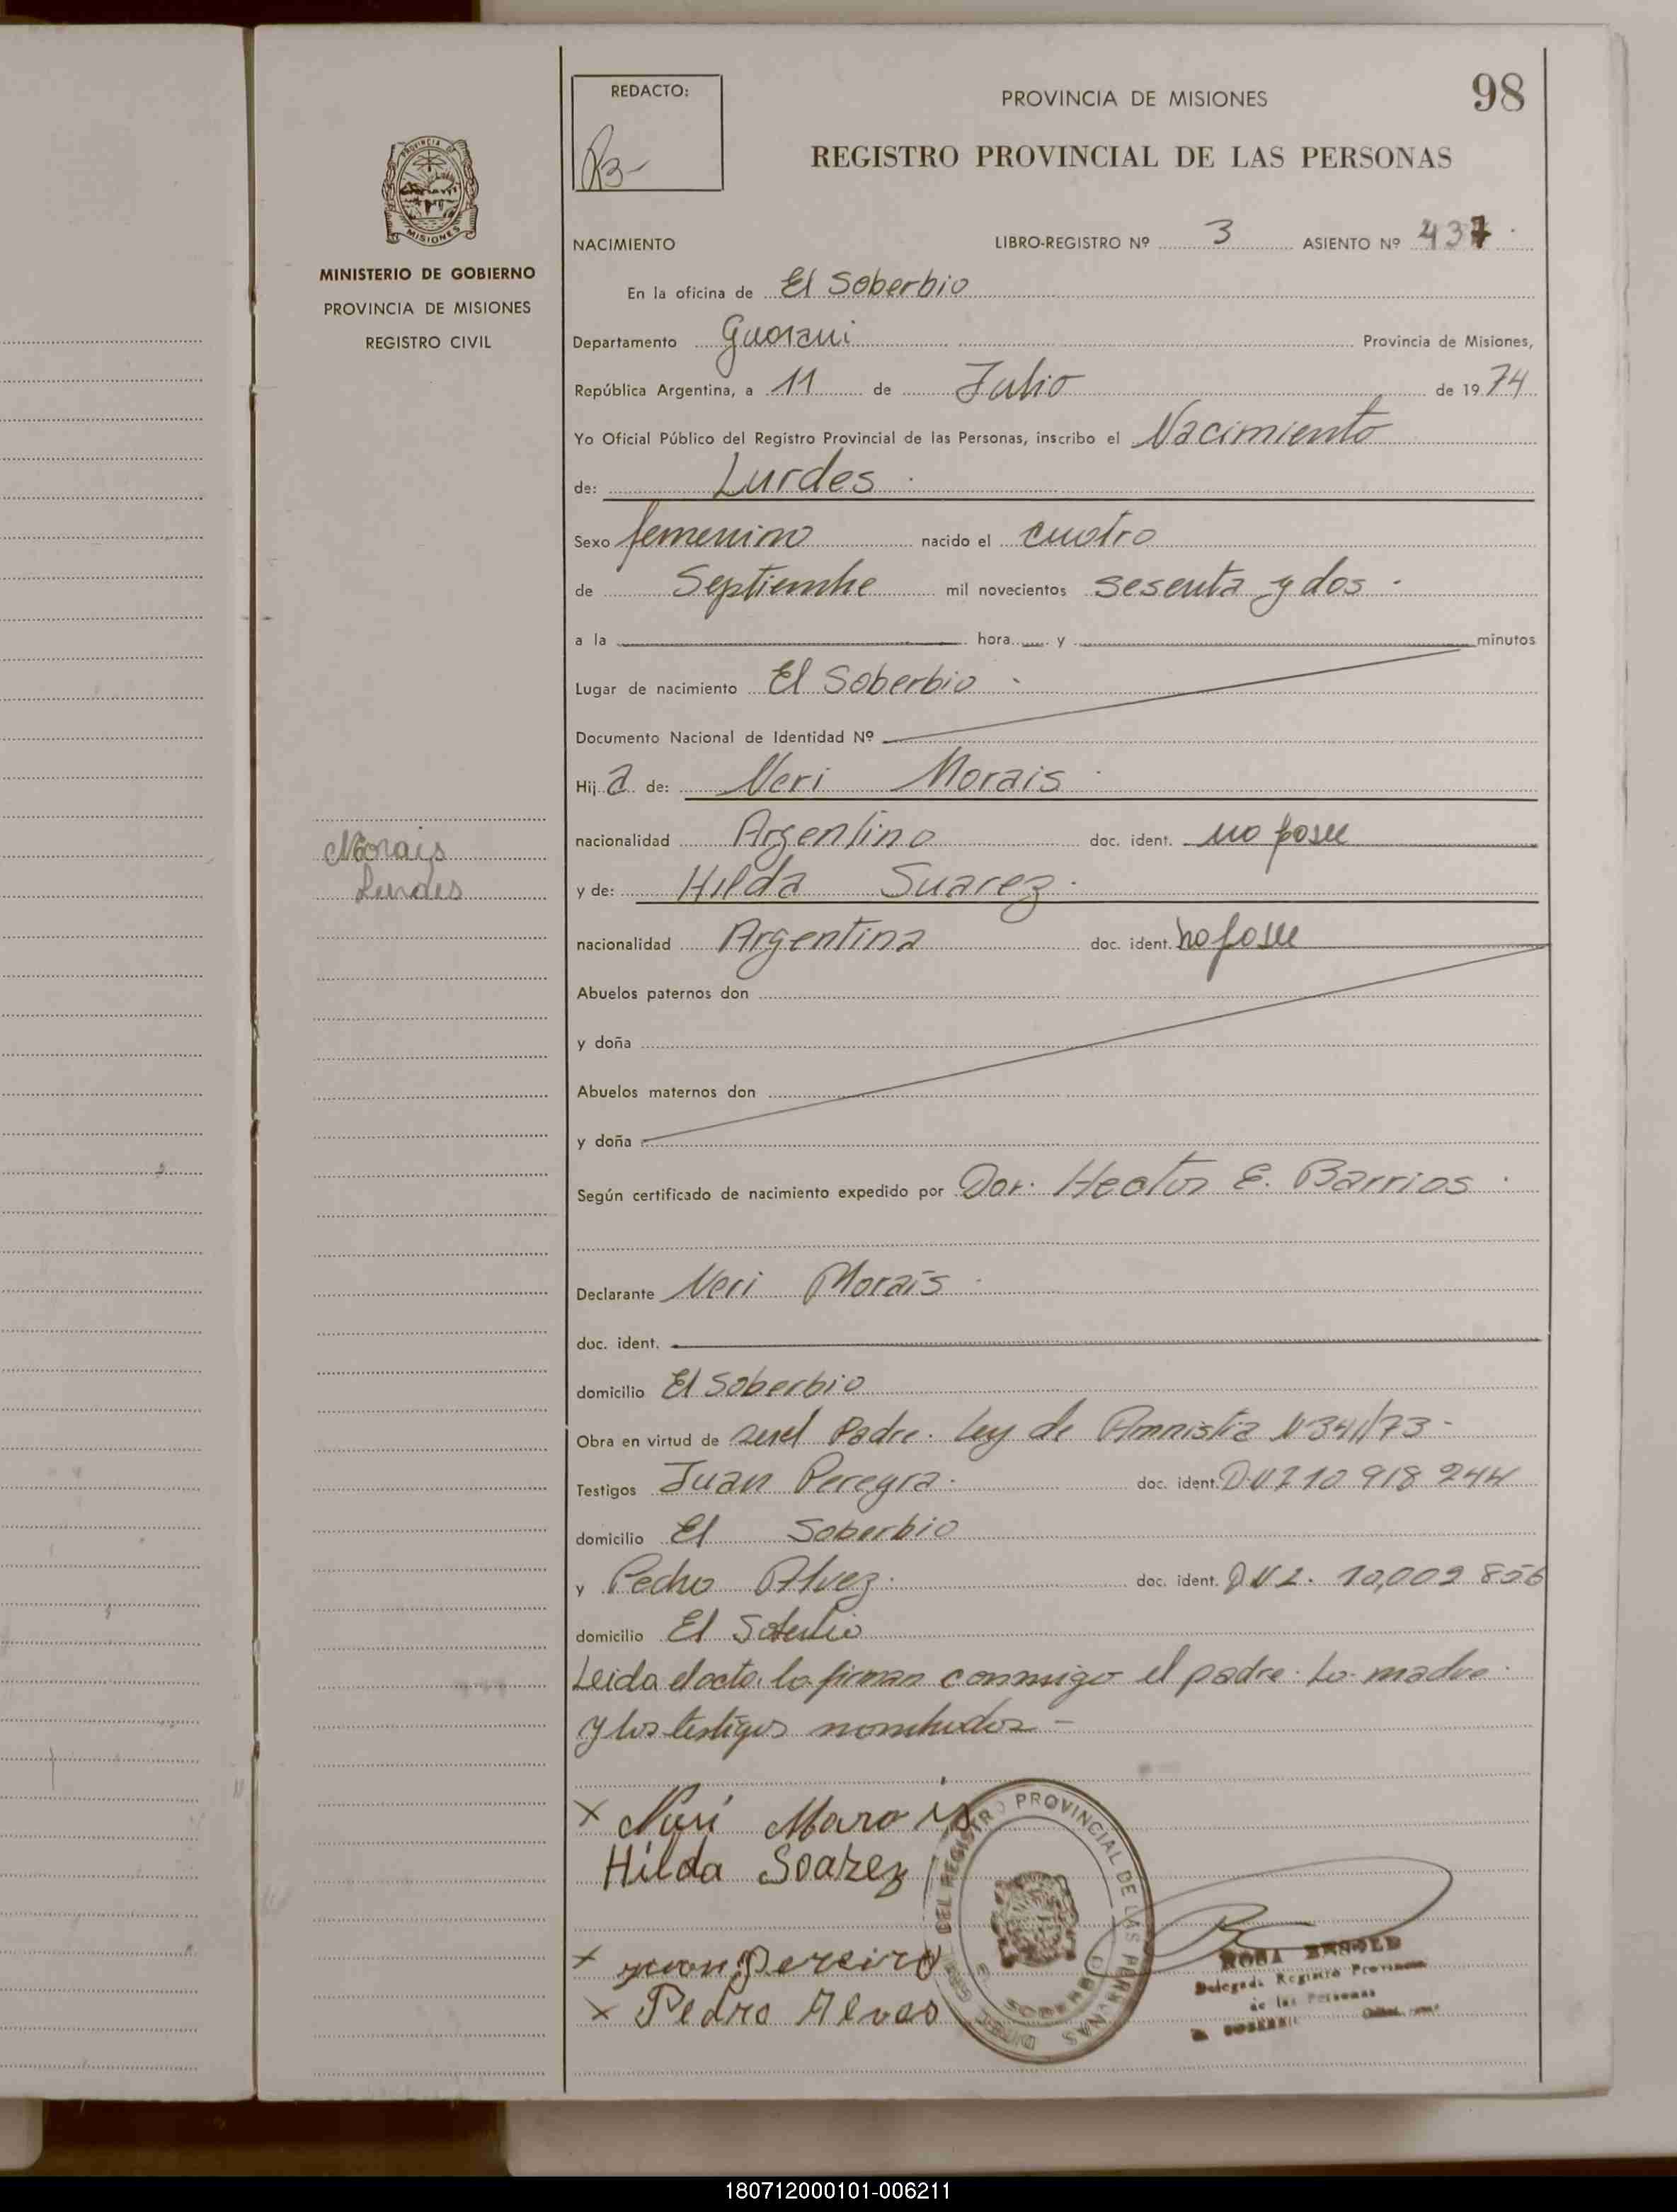 98
REDACTO:
PROVINCIA DE MISIONES
REGISTRO PROVINCIAL DE LAS PERSONAS
PROVINCIA DE
MISIONES
MINISTERIO DE GOBIERNO
PROVINCIA DE MISIONES
REGISTRO CIVIL
NACIMIENTO LIBRO-REGISTRO Nº 3 ASIENTO Nº 437
En la oficina de El Soberbio
Departamento Guarani Provincia de Misiones,
República Argentina, a 11 de Julio de 1974
Yo Oficial Público del Registro Provincial de las Personas, inscribo el Nacimiento
de: Lurdes
Sexo femenino nacido el cuatro
de Septiembre mil novecientos sesenta y dos
a la hora y minutos
Lugar de nacimiento El Soberbio
Documento Nacional de Identidad Nº
Hija de: Neri Morais
nacionalidad Argentino doc. ident. no posee
Morais
Lurdes
y de: Hilda Suarez
nacionalidad Argentina doc. ident. no posee
Abuelos paternos don
y doña
Abuelos maternos don
y doña
Según certificado de nacimiento expedido por Dor. Hector E. Barrios
Declarante Neri Morais
doc. ident.
domicilio El Soberbio
Obra en virtud de ser el Padre. Ley de Amnistia Nº 341/73-
Testigos Juan Pereyra doc. ident. DNI 10 918 244
domicilio El Soberbio
y Pedro Alvez doc. ident. DNI. 10,002 856
domicilio El Soberbio
Leida el acta, la firman conmigo el padre. La madre
y los testigos nombrados -
x Neri Marois
Hilda Soarez
x Juan Pereira
x Pedro Alves
DEL REGISTRO PROVINCIAL DE LAS PERSONAS
SOBERBIO
ROSA
Delegada Registro Provincial
de las Personas
180712000101-006211